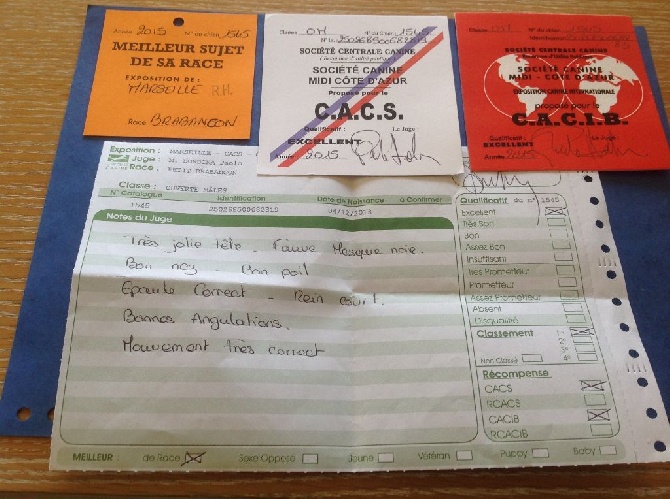 Année 2015 N° du chien 1545
MEILLEUR SUJET
DE SA RACE
EXPOSITION DE :
MARSEILLE
Race BRABANCON
Classe OM
SOCIÉTÉ CENTRALE CANINE
SOCIÉTÉ CANINE
MIDI CÔTE D'AZUR
Proposé pour le
C.A.C.S.
Qualificatif : Le Juge
EXCELLENT
Année 2015
SOCIÉTÉ CENTRALE CANINE
SOCIÉTÉ CANINE
MIDI - CÔTE D'AZUR
EXPOSITION CANINE INTERNATIONALE
proposé pour le
C.A.C.I.B.
Qualificatif : Le Juge
EXCELLENT
Année 2015
Exposition : MARSEILLE - CACS -
Juge :
Race : PETIT BRABANCON
Classe : OUVERTE MÂLES
N° Catalogue Identification Date de Naissance à Confirmer
1545
Notes du Juge
Très jolie tête - Fauve Masque noir.
Bon nez - Bon poil
Epaule Correct - Rein court.
Bonnes Angulations.
Mouvement très correct
Qualificatif du n° 1545
Excellent
Très Bon
Bon
Assez Bon
Insuffisant
Très Prometteur
Prometteur
Assez Prometteur
Absent
Disqualifié
Classement
Non Classé
Récompense
CACS
RCACS
CACIB
RCACIB
MEILLEUR : de Race Sexe Opposé Jeune Vétéran Puppy Baby